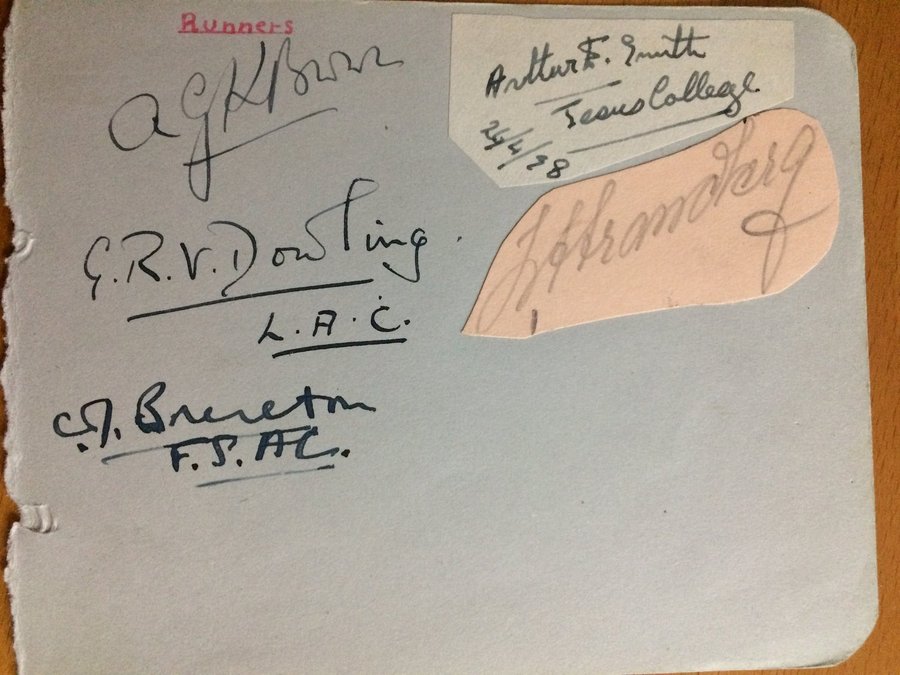 Runners
AGK Brown
G.R.V. Dowling
L.A.C.
C.J. Brereton
F.S.A.C.
Arthur F. Smith
Jesus College
24/4/38